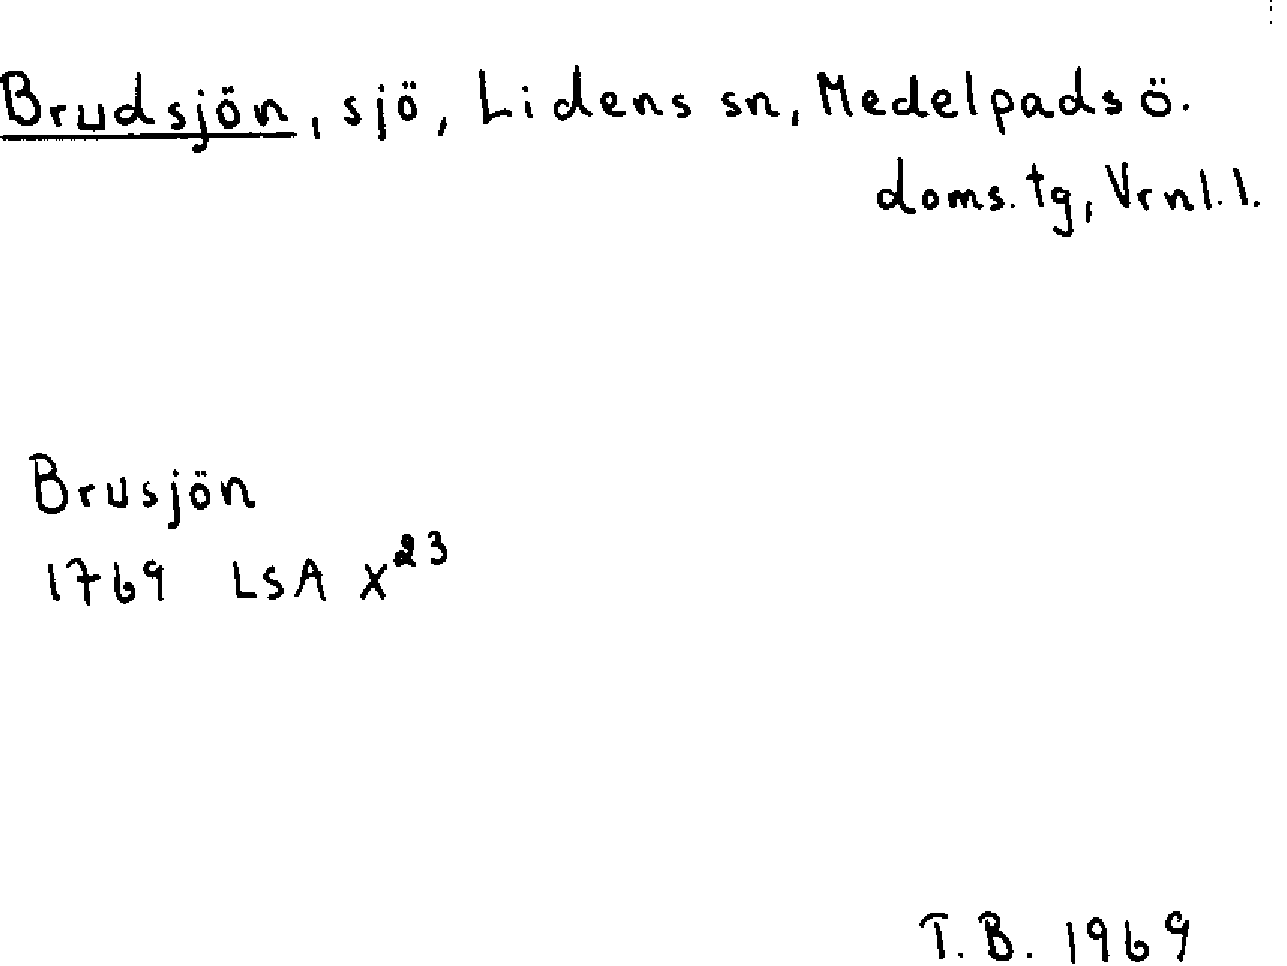 Brudsjön, sjö, Lidens sn, Medelpads ö.
doms. tg, Vrnl. l.
Brusjön
1769 LSA X²³
T. B. 1969